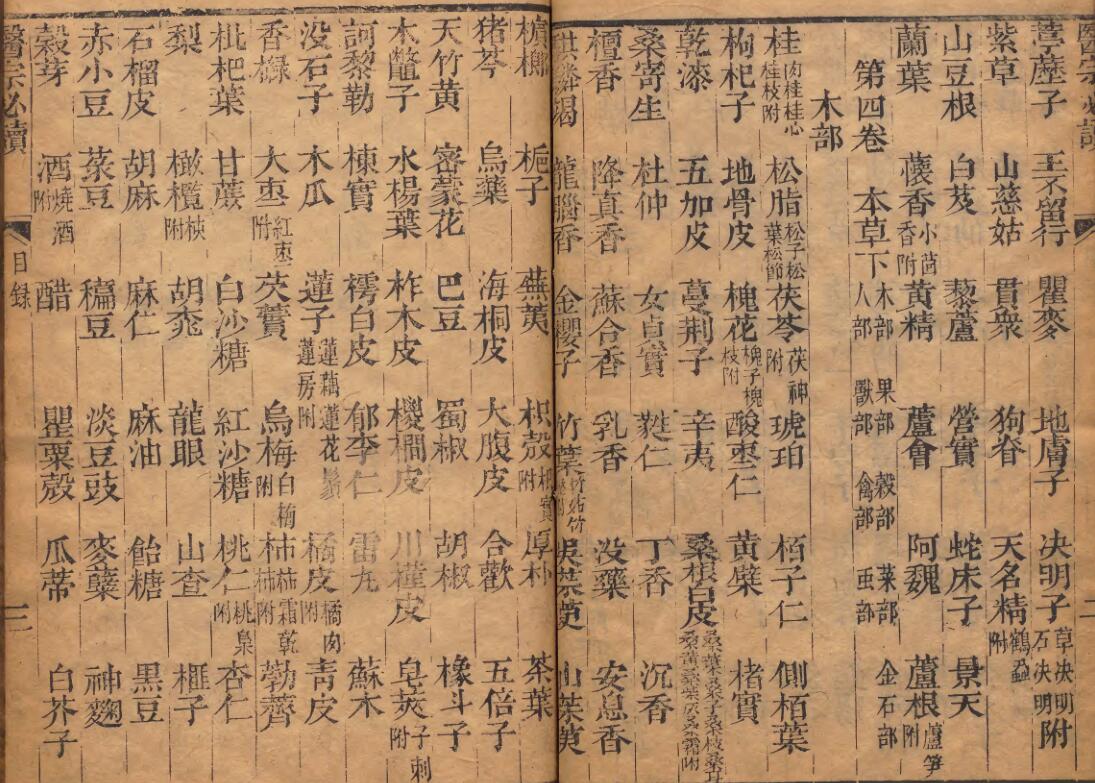 醫宗必讀 二
葶藶子 王不留行 瞿麥 地膚子 决明子 草决明石决明附
紫草 山慈姑 貫衆 狗脊 天名精 鶴蝨附
山豆根 白芨 藜蘆 營實 蛇床子 景天
蘭葉 蘹香 小茴香附 黄精 蘆會 阿魏 蘆根 蘆笋附
第四卷 本草下 木部 果部 穀部 菜部 金石部 人部 獸部 禽部 虫部
木部
桂 肉桂桂心桂枝附 松脂 松子松葉松節 茯苓 茯神附 琥珀 栢子仁 側栢葉
枸杞子 地骨皮 槐花 槐子槐枝附 酸枣仁 黄檗 楮實
乾漆 五加皮 蔓荆子 辛夷 桑根白皮 桑葉桑子桑枝桑耳桑黄桑柴灰桑霜附
桑寄生 杜仲 女貞實 蕤仁 丁香 沉香
檀香 降真香 蘇合香 乳香 没藥 安息香
竭 龍腦香 金櫻子 竹葉 竹茹竹 吳茱萸 山茱萸
檳榔 梔子 蕪荑 枳殻 枳實附 厚朴 茶葉
猪苓 烏藥 海桐皮 大腹皮 合歡 五倍子
天竹黄 密蒙花 巴豆 蜀椒 胡椒 橡斗子
木鼈子 水楊葉 柞木皮 椶櫚皮 川槿皮 皂莢 子刺附
訶黎勒 楝實 樗白皮 郁李仁 雷丸 蘇木
没石子 木瓜 蓮子 蓮藕蓮花鬚蓮房附 橘皮 橘肉附 青皮
香櫞 大枣 紅枣附 芡實 烏梅 白梅附 柿 柿霜乾柿附 荸薺
枇杷葉 甘蔗 白沙糖 紅沙糖 桃仁 桃梟附 杏仁
梨 橄欖 核附 胡桃 龍眼 山查 榧子
石榴皮 胡麻 麻仁 麻油 飴糖 黒豆
赤小豆 菉豆 稨豆 淡豆豉 麥蘖 神麯
榖芽 酒 燒酒附 醋 罌粟殻 瓜蒂 白芥子
醫宗必讀 目録 三